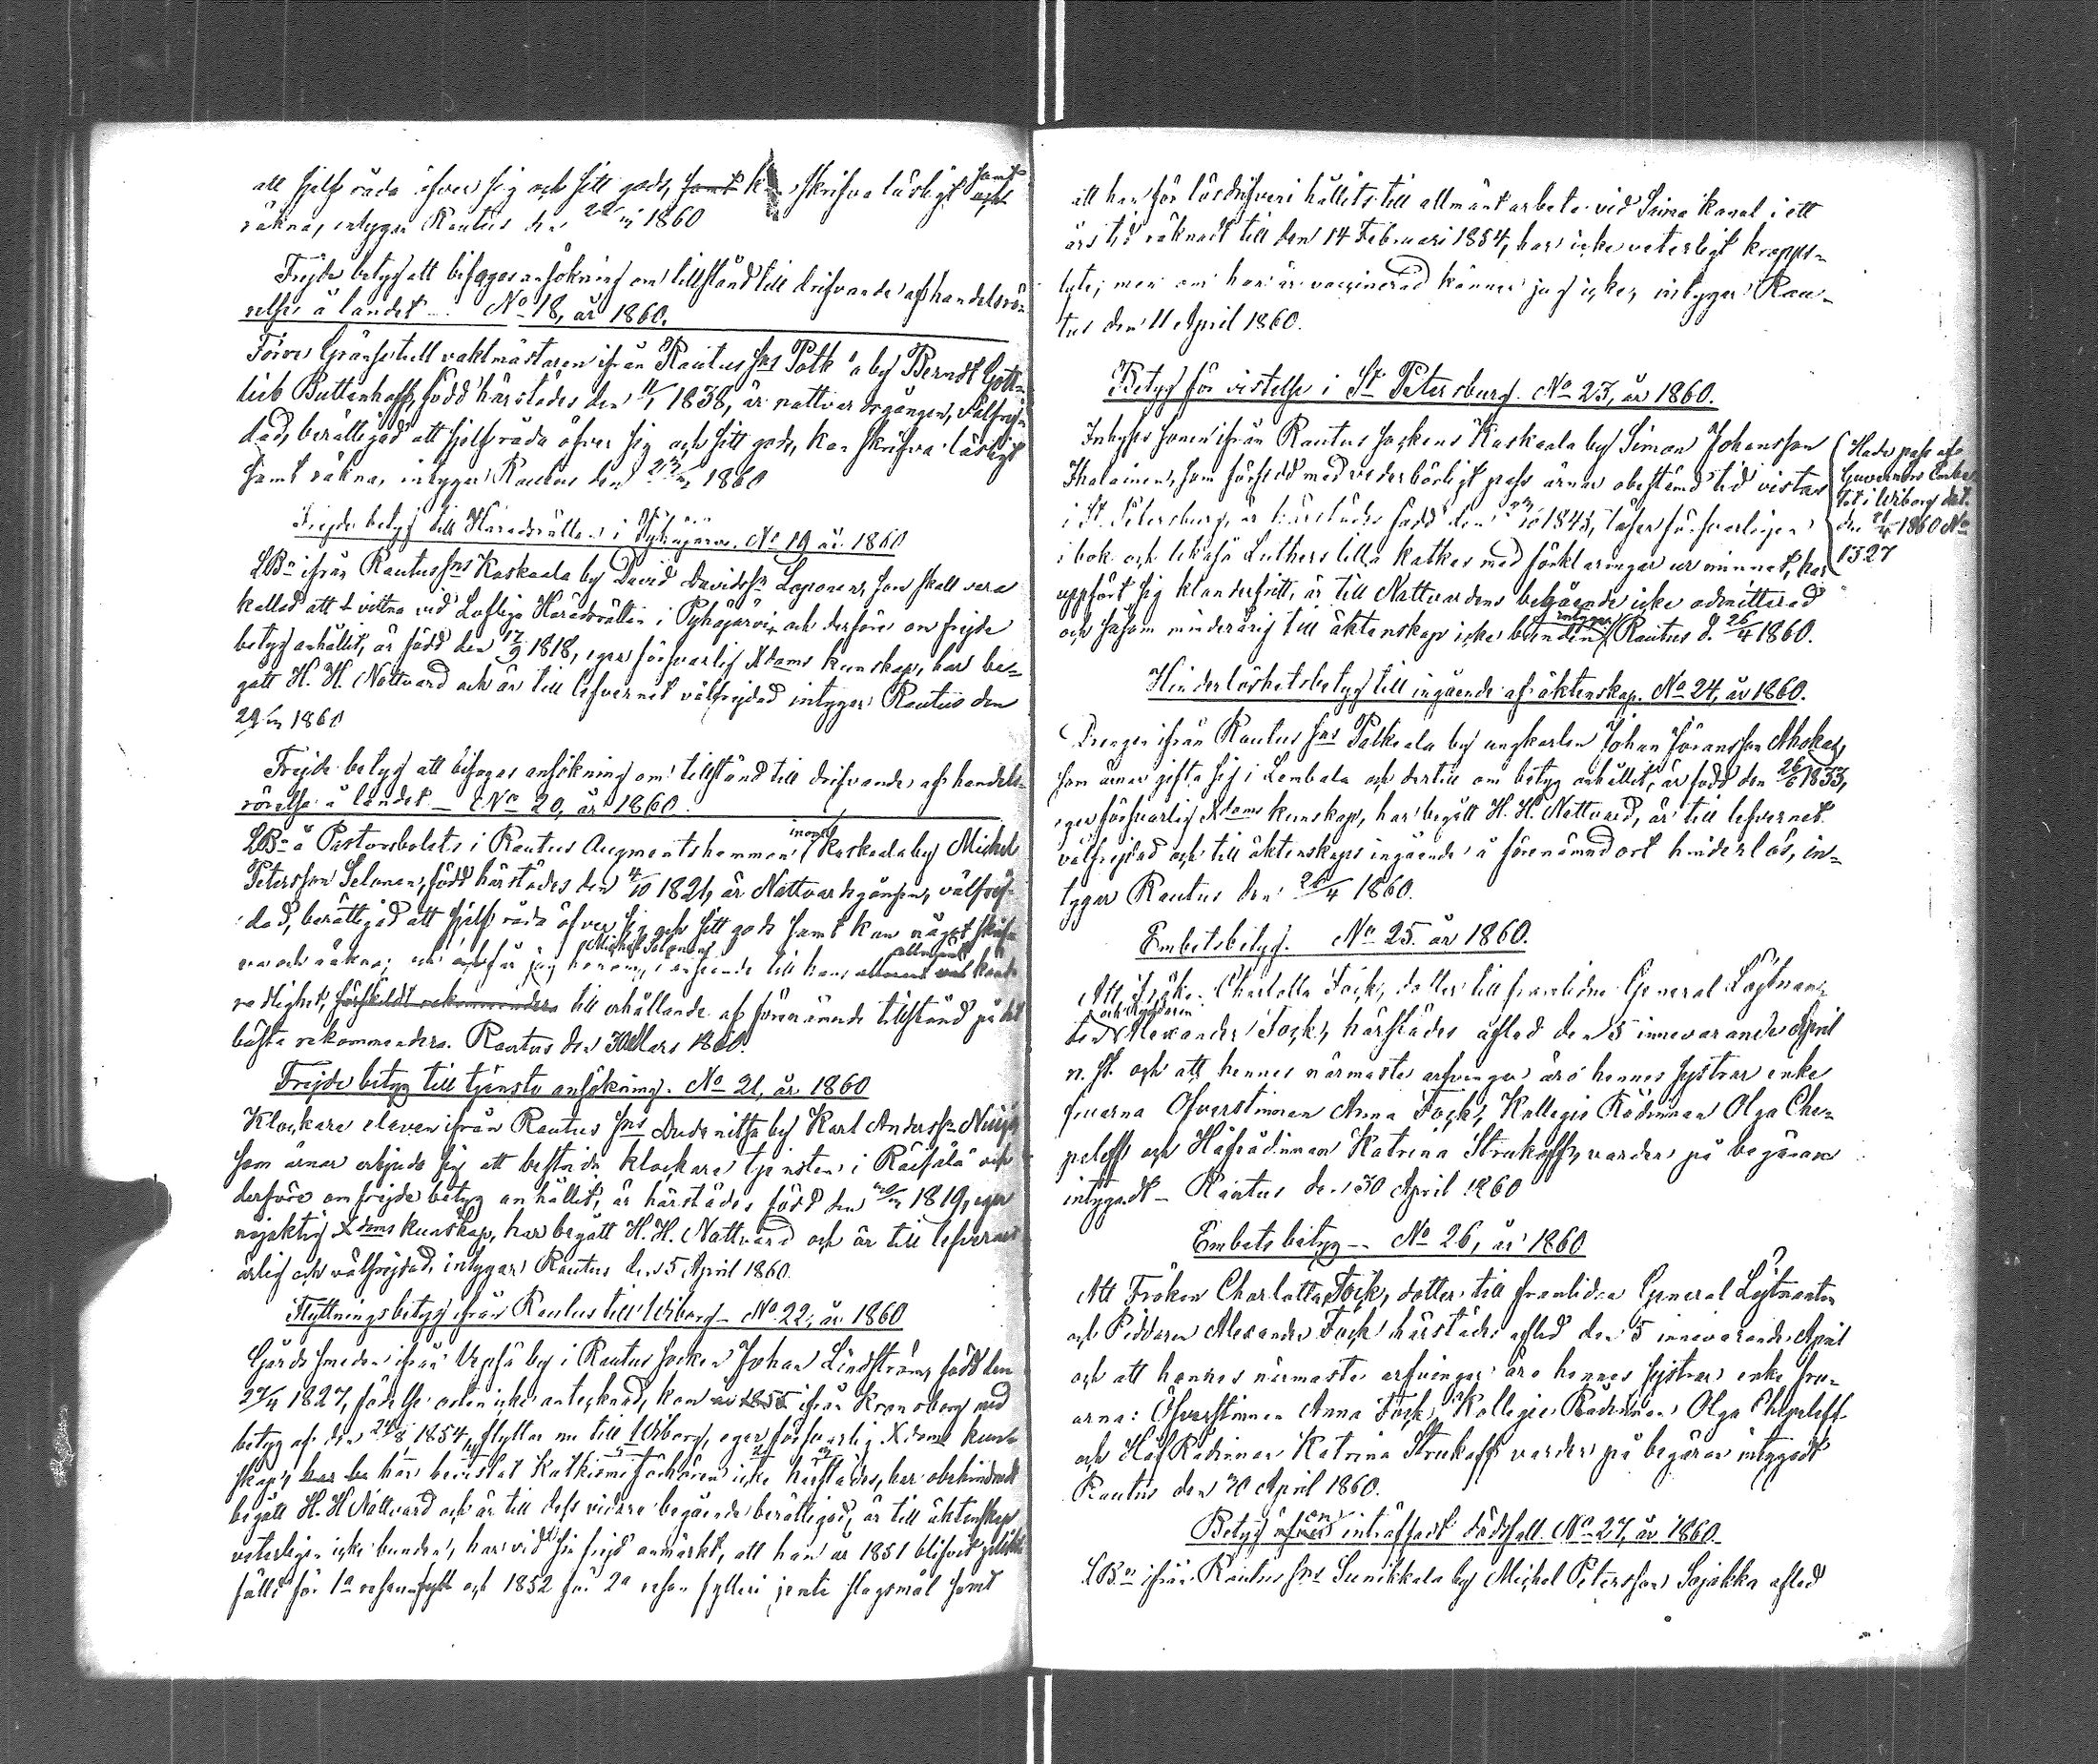 att sjelf råda öfver sig och sitt gods, samt k skrifva läsligt samt och
räkna, intygar Rautus den 22/m 1860
Frejde betyg att bifogas ansökning om tillstånd till drifvande af handelsrö-
relse å landet. No 18, år 1860.
Förre Gränsetull vaktmästaren ifrån Rautus sns Potk by Berndt Gott-
lieb Buttenhoff, född härstädes den 11/1 1838, är nattvardsgången, välfrej-
dad, berättigad att sjelf råda öfver sig och sitt gods, kan skrifva läsligt
samt räkna, intygar Rautus den 1860
Frejde betyg till Häradsrätten i Pyhäjärvi. No 19 år 1860
LBn ifrån Rautus sns Kaskaala by David Davidssn Loponen, som skall vara
kallad att vittna vid Lofliga Häradsrätten i Pyhäjärvi och derföre om frejde
betyg anhållit, är född den 17/9 1818, eger försvarlig Xdoms kunskap, har be-
gått H. H. Nattvard och är till lefvernet välfrejdad intygar Rautus den
29/m 1860
Frejde betyg att bifogas ansökning om tillstånd till drifvande af handels-
rörelse å landet – No 20, år 1860.
LBn å Pastorsbolets i Rautus Augmentshemman inom Kaskaala by Michel
Petersson Selonen, född härstädes den 4/10 1821, är Nattvardsgången, välfrej-
dad, berättigad att sjelf råda öfver sig och sitt gods samt kan något skrif-
va och räkna; och får jag honom, Michel Selonen i anseende till hans allmänt kända
redlighet, särskildt rekommendera till erhållande af förenämnde tillstånd på det
bästa rekommendera. Rautus den 30 Mars 1860.
Frejde betyg till tjenste ansökning. No 21, år 1860
Klockare eleven ifrån Rautus sns by Karl Anderssn
som ärnar erbjuda sig att bestrida klockare tjensten i Räisälä och
derföre om frejde betyg anhållit, är härstädes född den 1819, eger
nöjaktig Xdoms kunskap, har begått H. H. Nattvard och är till lefvernet
ärlig och välfrejdad, intygar Rautus den 5 April 1860.
Flyttningsbetyg ifrån Rautus till Wiborg – No 22, år 1860
Gårds smeden ifrån by i Rautus socken Johan Lindström, född den
27/4 1827, födelse orten icke antecknad, kom år 1855 ifrån Kronoborg med
betyg af den 24/8 1854, flyttar nu till Wiborg, eger försvarlig Xdoms kun-
skap, har be har bevistat Katkismi förhören icke härstädes, har obehindradt
begått H. H. Nattvard och är till dess vidare begående berättigad, är till äktenskap
veterligen icke bunden, har vid sin frejd anmärkt, att han år 1851 blifvit
fälld för 1a resan och 1852 för 2a resan fylleri jemte slagsmål samt
att han för lösdrifveri hållits till allmänt arbete vid Saima kanal i ett
års tid räknadt till den 14 Februari 1854, har icke veterligt kropps-
lyte; men om han är vaccinerad känner jag icke, intygar Rau-
tus den 11 April 1860.
Betyg för vistelse i St Petersburg. No 23, år 1860.
Inhyses sonen ifrån Rautus sockens Kaskaala by Simon Johansson
som försedd med vederbörligt pass ärnar obestämd tid vistas
i St. Petersburg, är härstädes född den 1843, läser försvarligen
i bok och lekså Luthers lilla katkes med förklaringar ur minnet, har
uppfört sig klanderfritt, är till Nattvardens begående icke admitterad
och såsom minderårig till äktenskap icke bunden, intygar Rautus d. 26/4 1860.
Hade pass af
Guvernörs Embe-
tet i Wiborg dat.
den 1860 No
1327
Hinderlöshetsbetyg till ingående af äktenskap. No 24, år 1860.
Drengen ifrån Rautus sns Palkeala by ungkarlen Johan Göransson Ahokas,
som ärnar gifta sig i Lembala och dertill om betyg anhållit, är född den 26/6 1833,
eger försvarlig Xdoms kunskap, har begått H. H. Nattvard, är till lefvernet
välfrejdad och till äktenskaps ingående å förenämnd ort hinderlös, in-
tygar Rautus den 28/4 1860.
Embetsbetyg. No 25. år 1860.
Att Fröken Charlotta Fock, dotter till framlidne General Löjtnan-
ten och Riddaren Alexander Fock, härstädes aflad den 5 innevarande April
n. st. och att hennes närmaste arfvingar äro hennes systrar enke
fruarna Öfverstinnan Anna Fock, Kollegie Rådinnan Olga Che-
peleff och Hofrådinnan Katrina Strukoff, varder på begäran
intygadt – Rautus den 30 April 1860
Embets betyg – No 26, år 1860
Att Fröken Charlotta Fock, dotter till framlidne General Löjtnanten
och Riddaren Alexander Fock härstädes aflad den 5 innevarande April
och att hennes närmaste arfvingar äro hennes systrar enke fru-
arna: Öfverstinnan Anna Fock, Kollegie Rådinnan Olga Chepeleff
och Hof Rådinnan Katrina Strukoff varder på begäran intygadt
Rautus den 30 April 1860.
Betyg öfver om inträffadt dödsfall. No 27, år 1860.
LBn ifrån Rautus sns Sunikkala by Michel Petersson Sojakka aflad